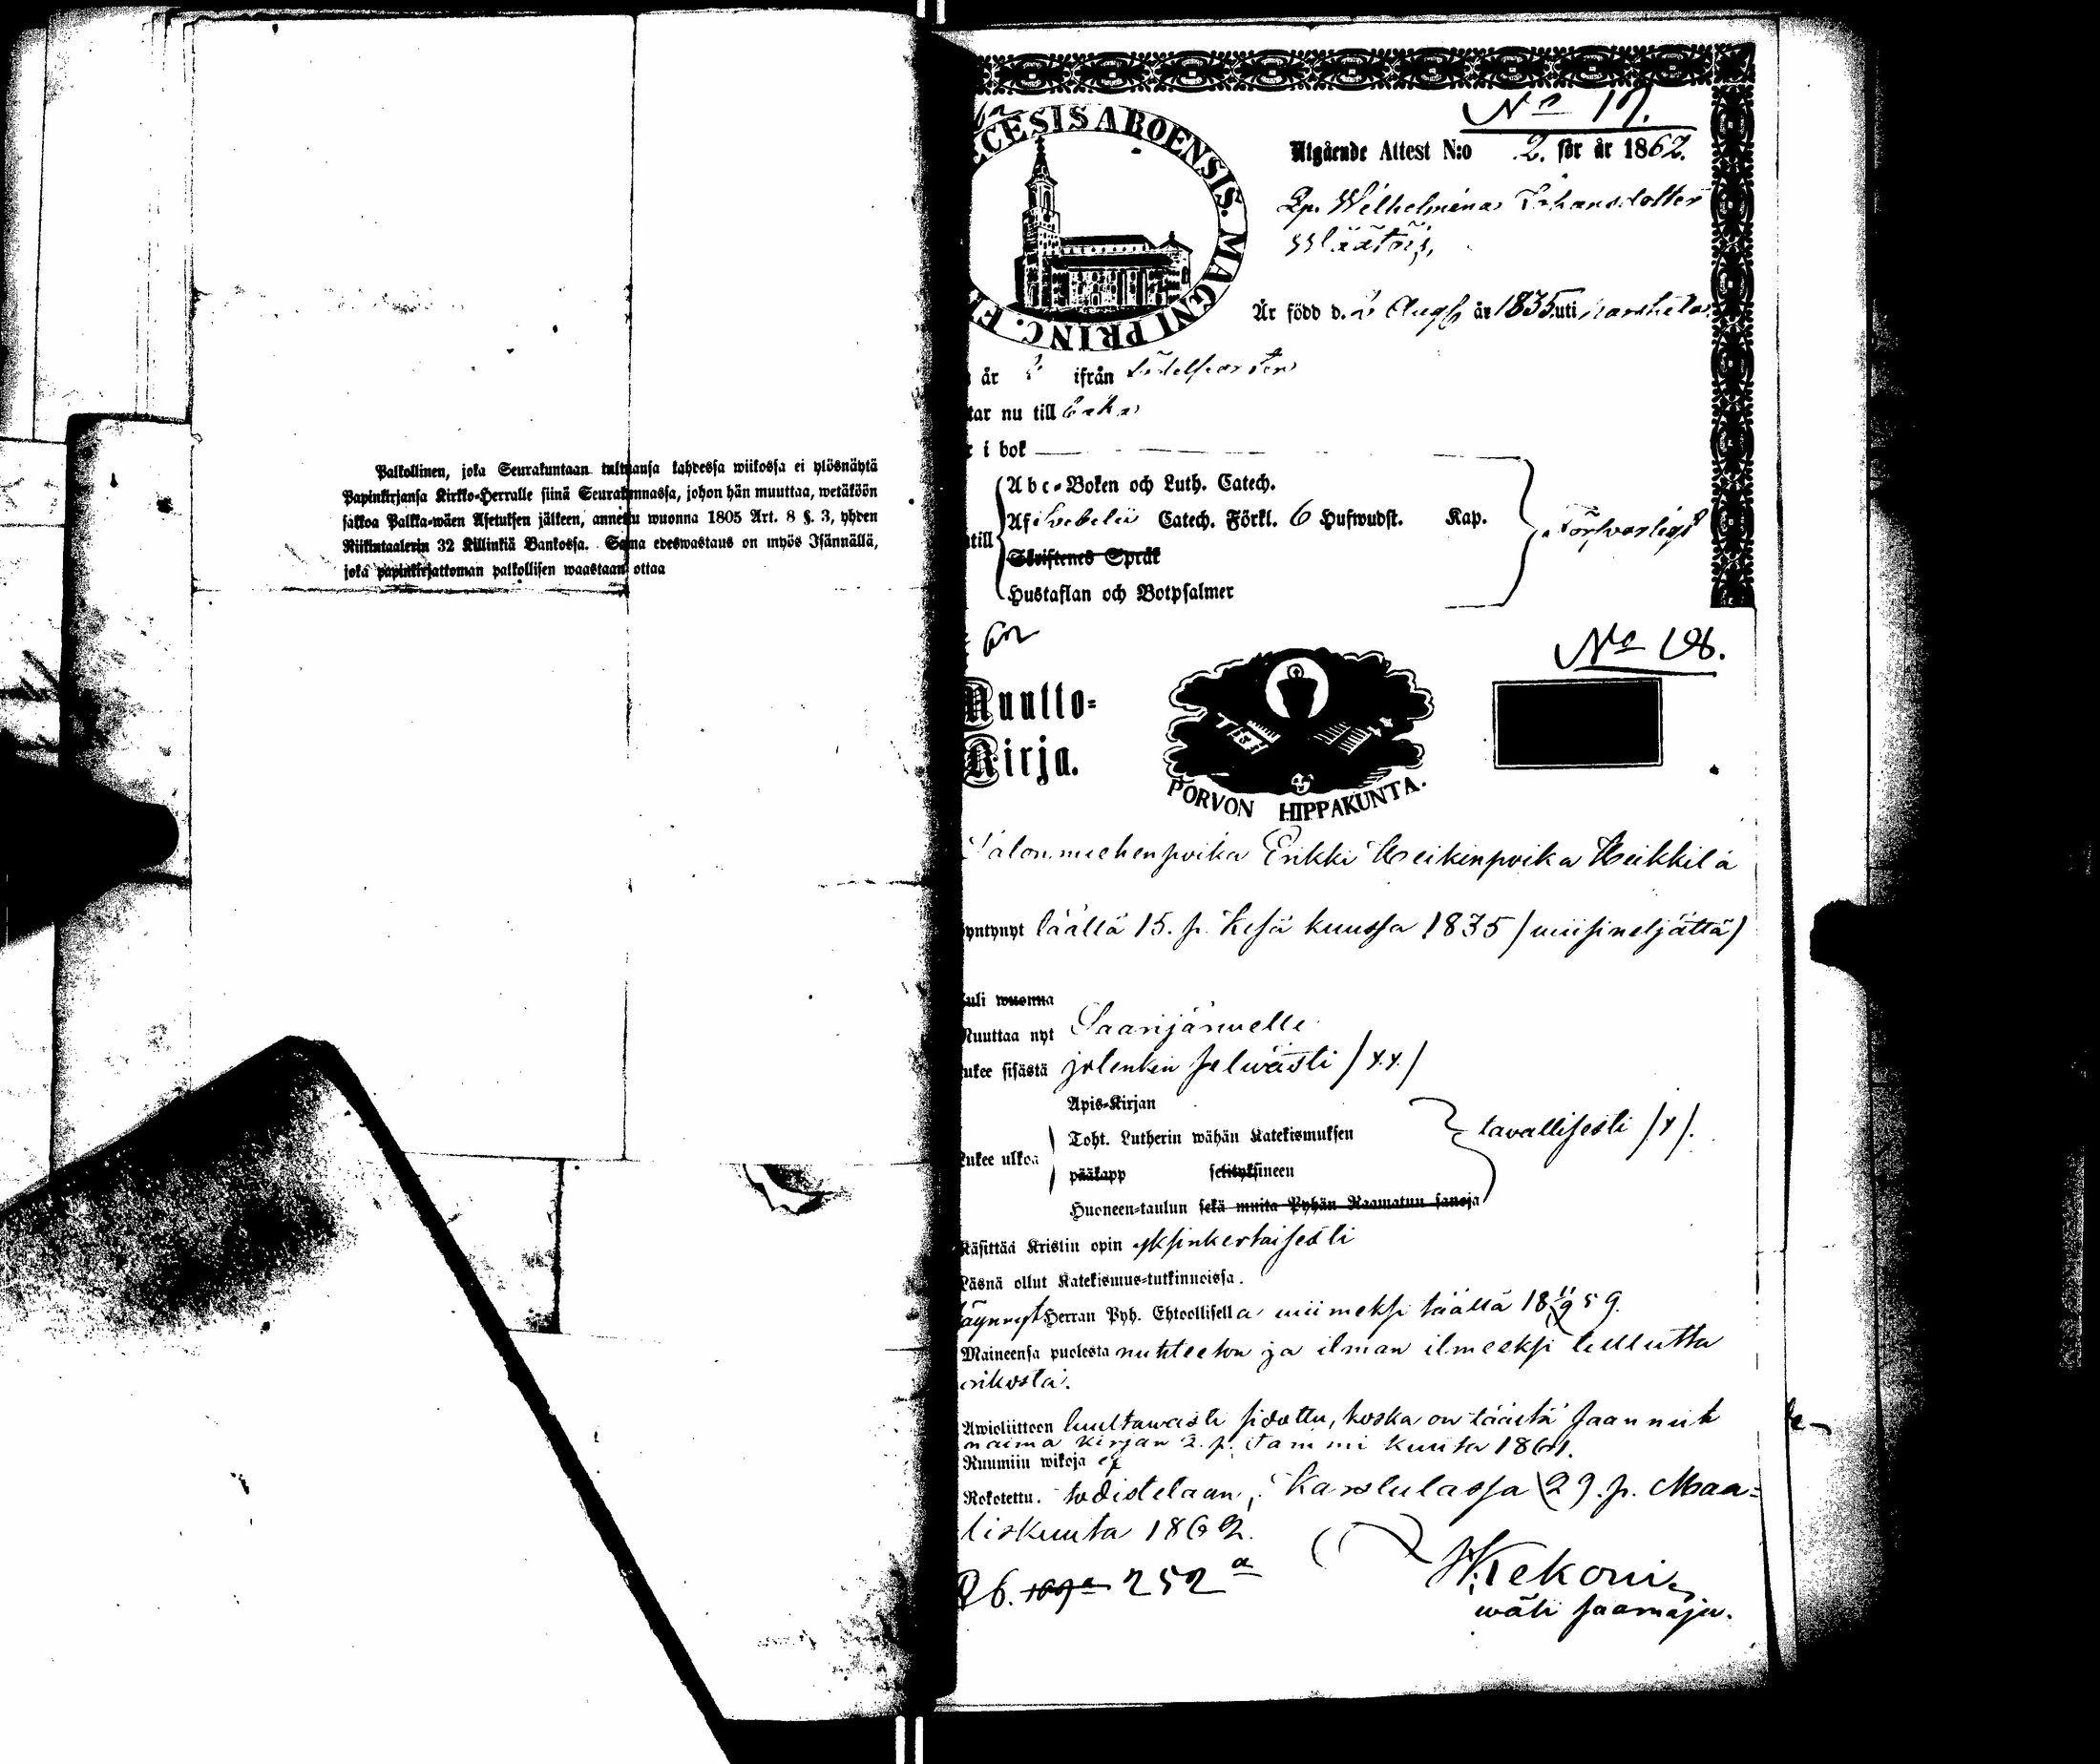 Palkollinen, joka Seurakuntaan tultuansa kahdessa wiikossa ei ylösnäytä
Papinkirjansa Kirkko-Herralle siinä Seurakunnassa, johon hän muuttaa, wetäköön
sakkoa Palkka-wäen Asetuksen jälkeen, annettu wuonna 1805 Art. 8 §. 3, yhden
Riikintaalerin 32 Killinkiä Bankossa. Sama edeswastaus on myös Isännällä,
joka papinkirjattoman palkollisen waastaan ottaa
No 17.
CESIS ABOENSIS. MAGNI PRINC. F
Utgående Attest N:o 2. för år 1862.
Wilhelmina Johansdotter
Är född d. Aug. år 1835 uti
år ifrån
tar nu till
i bok
Abc-Boken och Luth. Catech.
Af Svebelii Catech. Förkl. 6 Hufwudst. Kap.
till
Skriftenes Språk
Hustaflan och Botpsalmer
Försvarligt
No 18.
Muutto-
Kirja.
PORVON HIPPAKUNTA.
Talonmiehenpoika Erikki Heikinpoika Heikkilä
Syntynyt täällä 15. p. Kesä kuussa 1835 / wiisineljättä /
Tuli wuonna
Muuttaa nyt Saarijärwelle
Lukee sisästä jotenkin selwästi / x.x. /
Apis-Kirjan
Toht. Lutherin wähän Katekismuksen
Lukee ulkoa
tavallisesti / x /.
pääkapp selityksineen
Huoneen-taulun sekä muita Pyhän Raamatun sanoja
Käsittää Kristin opin yksinkertaisesti
Läsnä ollut Katekismus-tutkinnoissa.
Käynyt Herran Pyh. Ehtoollisella wiimeksi täällä 18 11/9 59.
Maineensa puolesta nuhteeton ja ilman ilmeeksi tullutta
rikosta.
Awioliittoon luultawasti sidottu, koska on täältä saannut
naima kirjan 2. p. Tammi kuuta 1861.
Ruumiin wikoja ej
Rokotettu. todistetaan, Karstulassa 29. p. Maa-
liskuuta 1862.
252 a
Kekoni
wäli saarnaja.